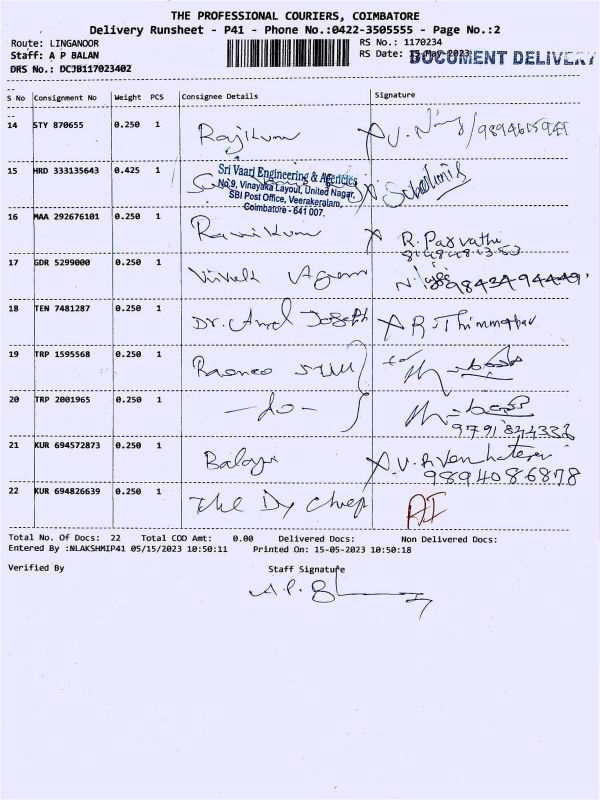 THE PROFESSIONAL COURIERS, COIMBATORE
Delivery Runsheet - P41 - Phone No.:0422-3505555 - Page No.:2
Route: LINGANOOR
RS No.: 1170234
Staff: A P BALAN
RS Date: 15-May-2023
DOCUMENT DELIVERY
DRS No.: DCJB117023402
S No Consignment No Weight PCS Consignee Details Signature
14 STY 870655 0.250 1 Rajkum
15 HRD 333135643 0.425 1
Sri Vaari Engineering & Agencies
No.9, Vinayaka Layout, United Nagar,
SBI Post Office, Veerakeralam,
Coimbatore - 641 007.
16 MAA 292676101 0.250 1 Ramkum R. Parvathi
17 GDR 5299000 0.250 1 Vivek 9843494449
18 TEN 7481287 0.250 1 Dr. Amal Joseph
19 TRP 1595568 0.250 1
20 TRP 2001965 0.250 1 - do -
21 KUR 694572873 0.250 1 Balaji
9894086878
22 KUR 694826639 0.250 1 The Dy Chief
Total No. Of Docs: 22 Total COD Amt: 0.00 Delivered Docs: Non Delivered Docs:
Entered By :NLAKSHMIP41 05/15/2023 10:50:11 Printed On: 15-05-2023 10:50:18
Verified By Staff Signature
A.P.